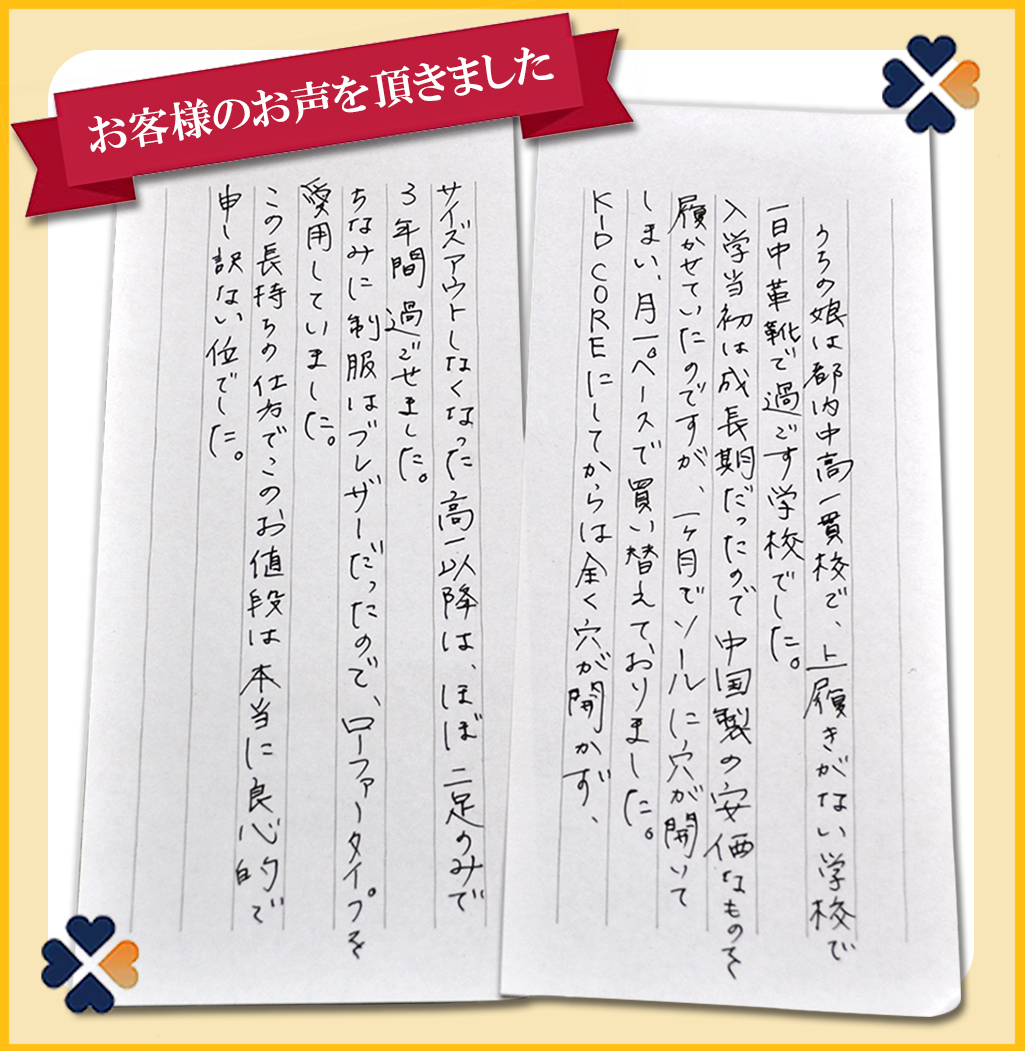 お客様のお声を頂きました
うちの娘は都内中高一貫校で、上履きがない学校で
一日中革靴で過ごす学校でした。
入学当初は成長期だったので中国製の安価なものを
履かせていたのですが、一ヶ月でソールに穴が開いて
しまい、月一ペースで買い替えておりました。
KID COREにしてからは全く穴が開かず、
サイズアウトしなくなった高一以降は、ほぼ二足のみで
3年間過ごせました。
ちなみに制服はブレザーだったので、ローファータイプを
愛用していました。
この長持ちの仕方でこのお値段は本当に良心的で
申し訳ない位でした。